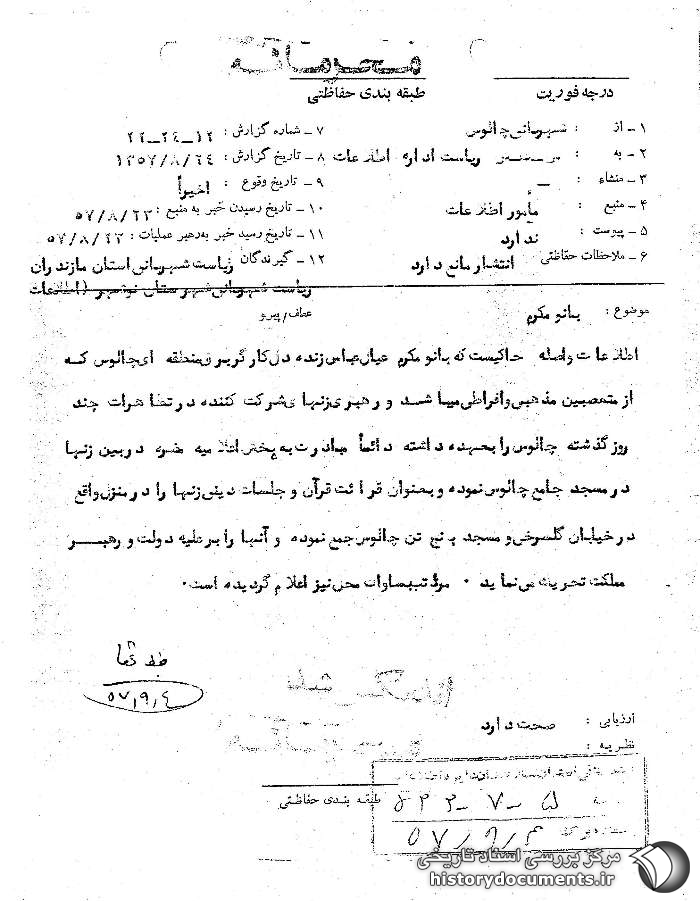 محرمانه
درجه فوریت
طبقه بندی حفاظتی
۱ـ از : شهربانی چالوس
۲ـ به : ریاست اداره اطلاعات
۳ـ منشاء : ــ
۴ـ منبع : مأمور اطلاعات
۵ـ پیوست : ندارد
۶ـ ملاحظات حفاظتی : انتشار مانع دارد
۷ـ شماره گزارش : ۱۲ـ۲۴ـ۲۲
۸ـ تاریخ گزارش : ۱۳۵۷/۸/۲۴
۹ـ تاریخ وقوع : اخیراً
۱۰ـ تاریخ رسیدن خبر به منبع : ۵۷/۸/۲۳
۱۱ـ تاریخ رسید خبر به رهبر عملیات : ۵۷/۸/۲۳
۱۲ـ گیرندگان ریاست شهربانی استان مازندران
ریاست شهربانی شهرستان نوشهر (اطلاعات
موضوع : بانو مکرم
عطف/پیرو
اطلاعات واصله حاکیست که بانو مکرم عیال عباس زنده دل کارگر برق منطقه ای چالوس که
از متعصبین مذهبی و افراطی میباشد و رهبری زنهای شرکت کننده در تظاهرات چند
روز گذشته چالوس را بعهده داشته دائماً مبادرت به پخش اعلامیه مضره در بین زنها
در مسجد جامع چالوس نموده و بعنوان قرائت قرآن و جلسات دینی زنها را در منزل واقع
در خیابان گلسرخی و مسجد پنج تن چالوس جمع نموده و آنها را بر علیه دولت و رهبر
مملکت تحریک می نماید ۰ مراتب بساواک محل نیز اعلام گردیده است ۰
۵۷٫۹٫۴
ارزیابی : صحت دارد
نظریه :
طبقه بندی حفاظتی
۵۷٫۹٫۴
مرکز بررسی اسناد تاریخی
historydocuments.ir